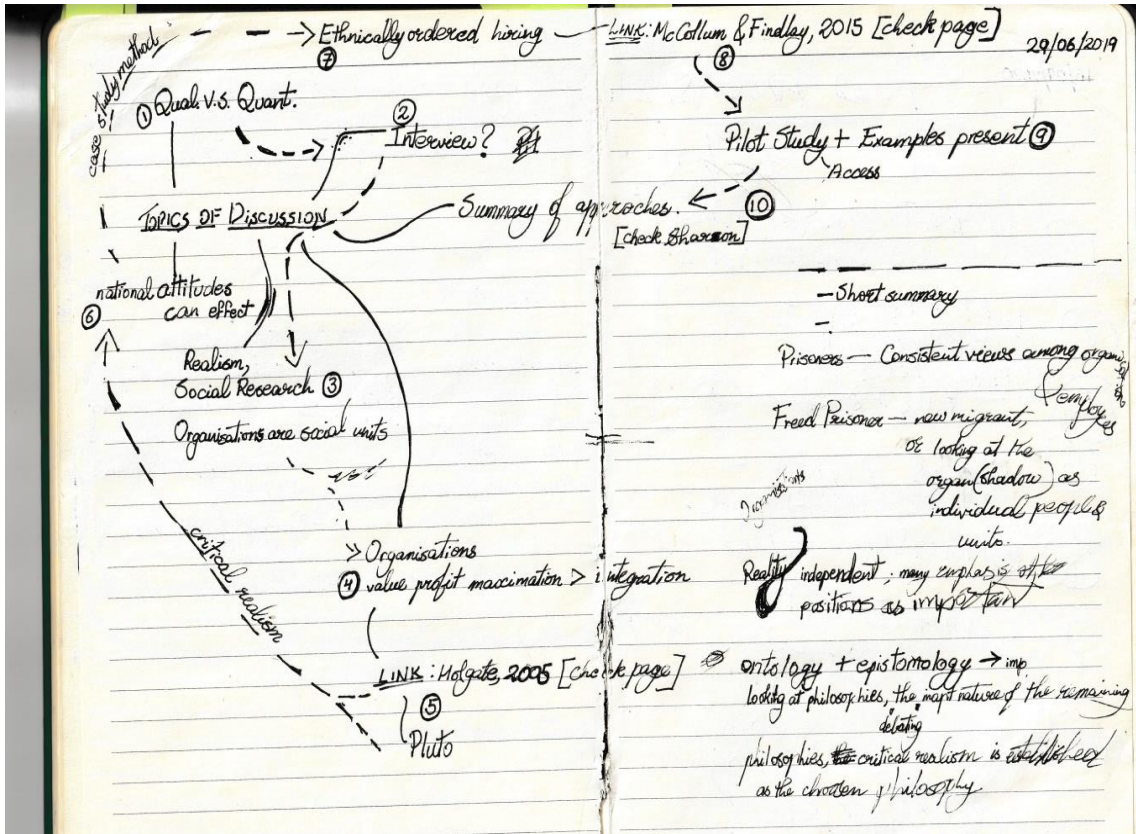 case study method
Ethnically ordered hiring
⑦
LINK: McCollum & Findlay, 2015 [check page]
⑧
29/06/2019
① Qual. V.S. Quant.
②
Interview?
Pilot Study + Examples present ⑨
Access
TOPICS OF DISCUSSION
Summary of approches.
⑩
[check Sharon]
national attitudes
can effect
⑥
Realism,
Social Research ③
Organisations are social units
Organisations
④ value profit maximation > integration
critical realism
LINK: Holgate, 2005 [check page]
⑤
Pluto
- Short summary
-
Prisoners — Consistent views among organisations
& employes
Freed Prisoner — new migrant,
or looking at the
organ(shadow) as
individual people &
units.
Organisations
Reality independent : many emphasis
positions as important
ontology + epistomology → imp.
looking at philosophies, the nature of the remaining
debating
philosophies, critical realism is established
as the choosen philosophy